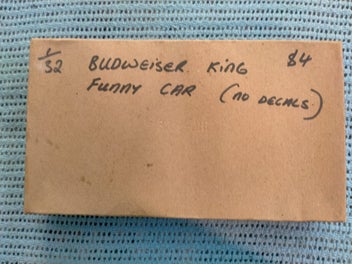 1/32 BUDWEISER KING $4
FUNNY CAR (NO DECALS)